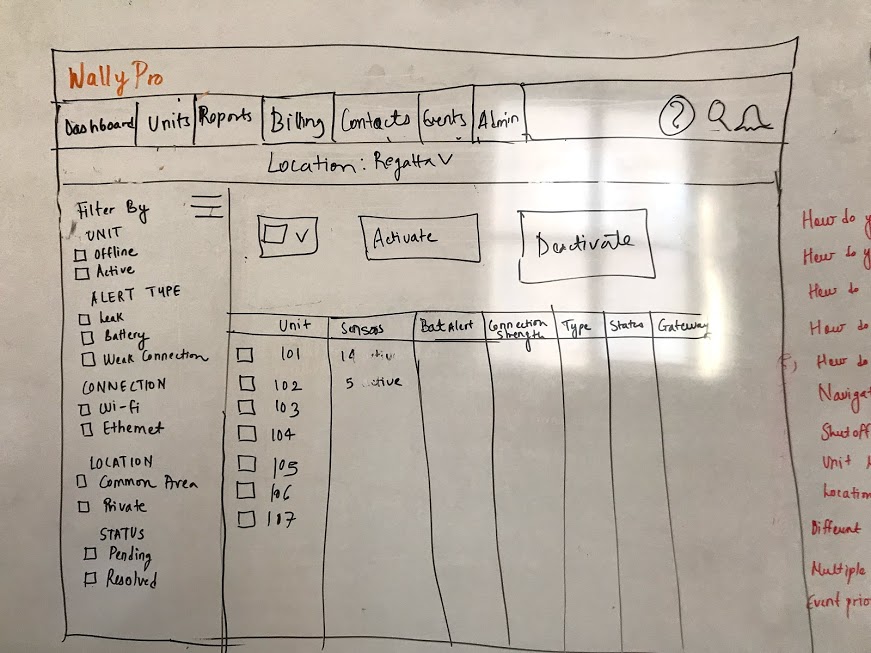 Wally Pro
Dashboard Units Reports Billing Contacts Events Admin ?
Location: Regatta V
Filter By
UNIT
Offline
Active
ALERT TYPE
Leak
Battery
Weak Connection
CONNECTION
Wi-Fi
Ethernet
LOCATION
Common Area
Private
STATUS
Pending
Resolved
V Activate Deactivate
Unit Sensors Bat Alert Connection Strength Type Status Gateway
101 14
102 5 active
103
104
105
106
107
How do
How do
How do
How do
How do
Shut off
Unit
Different
Multiple
Event